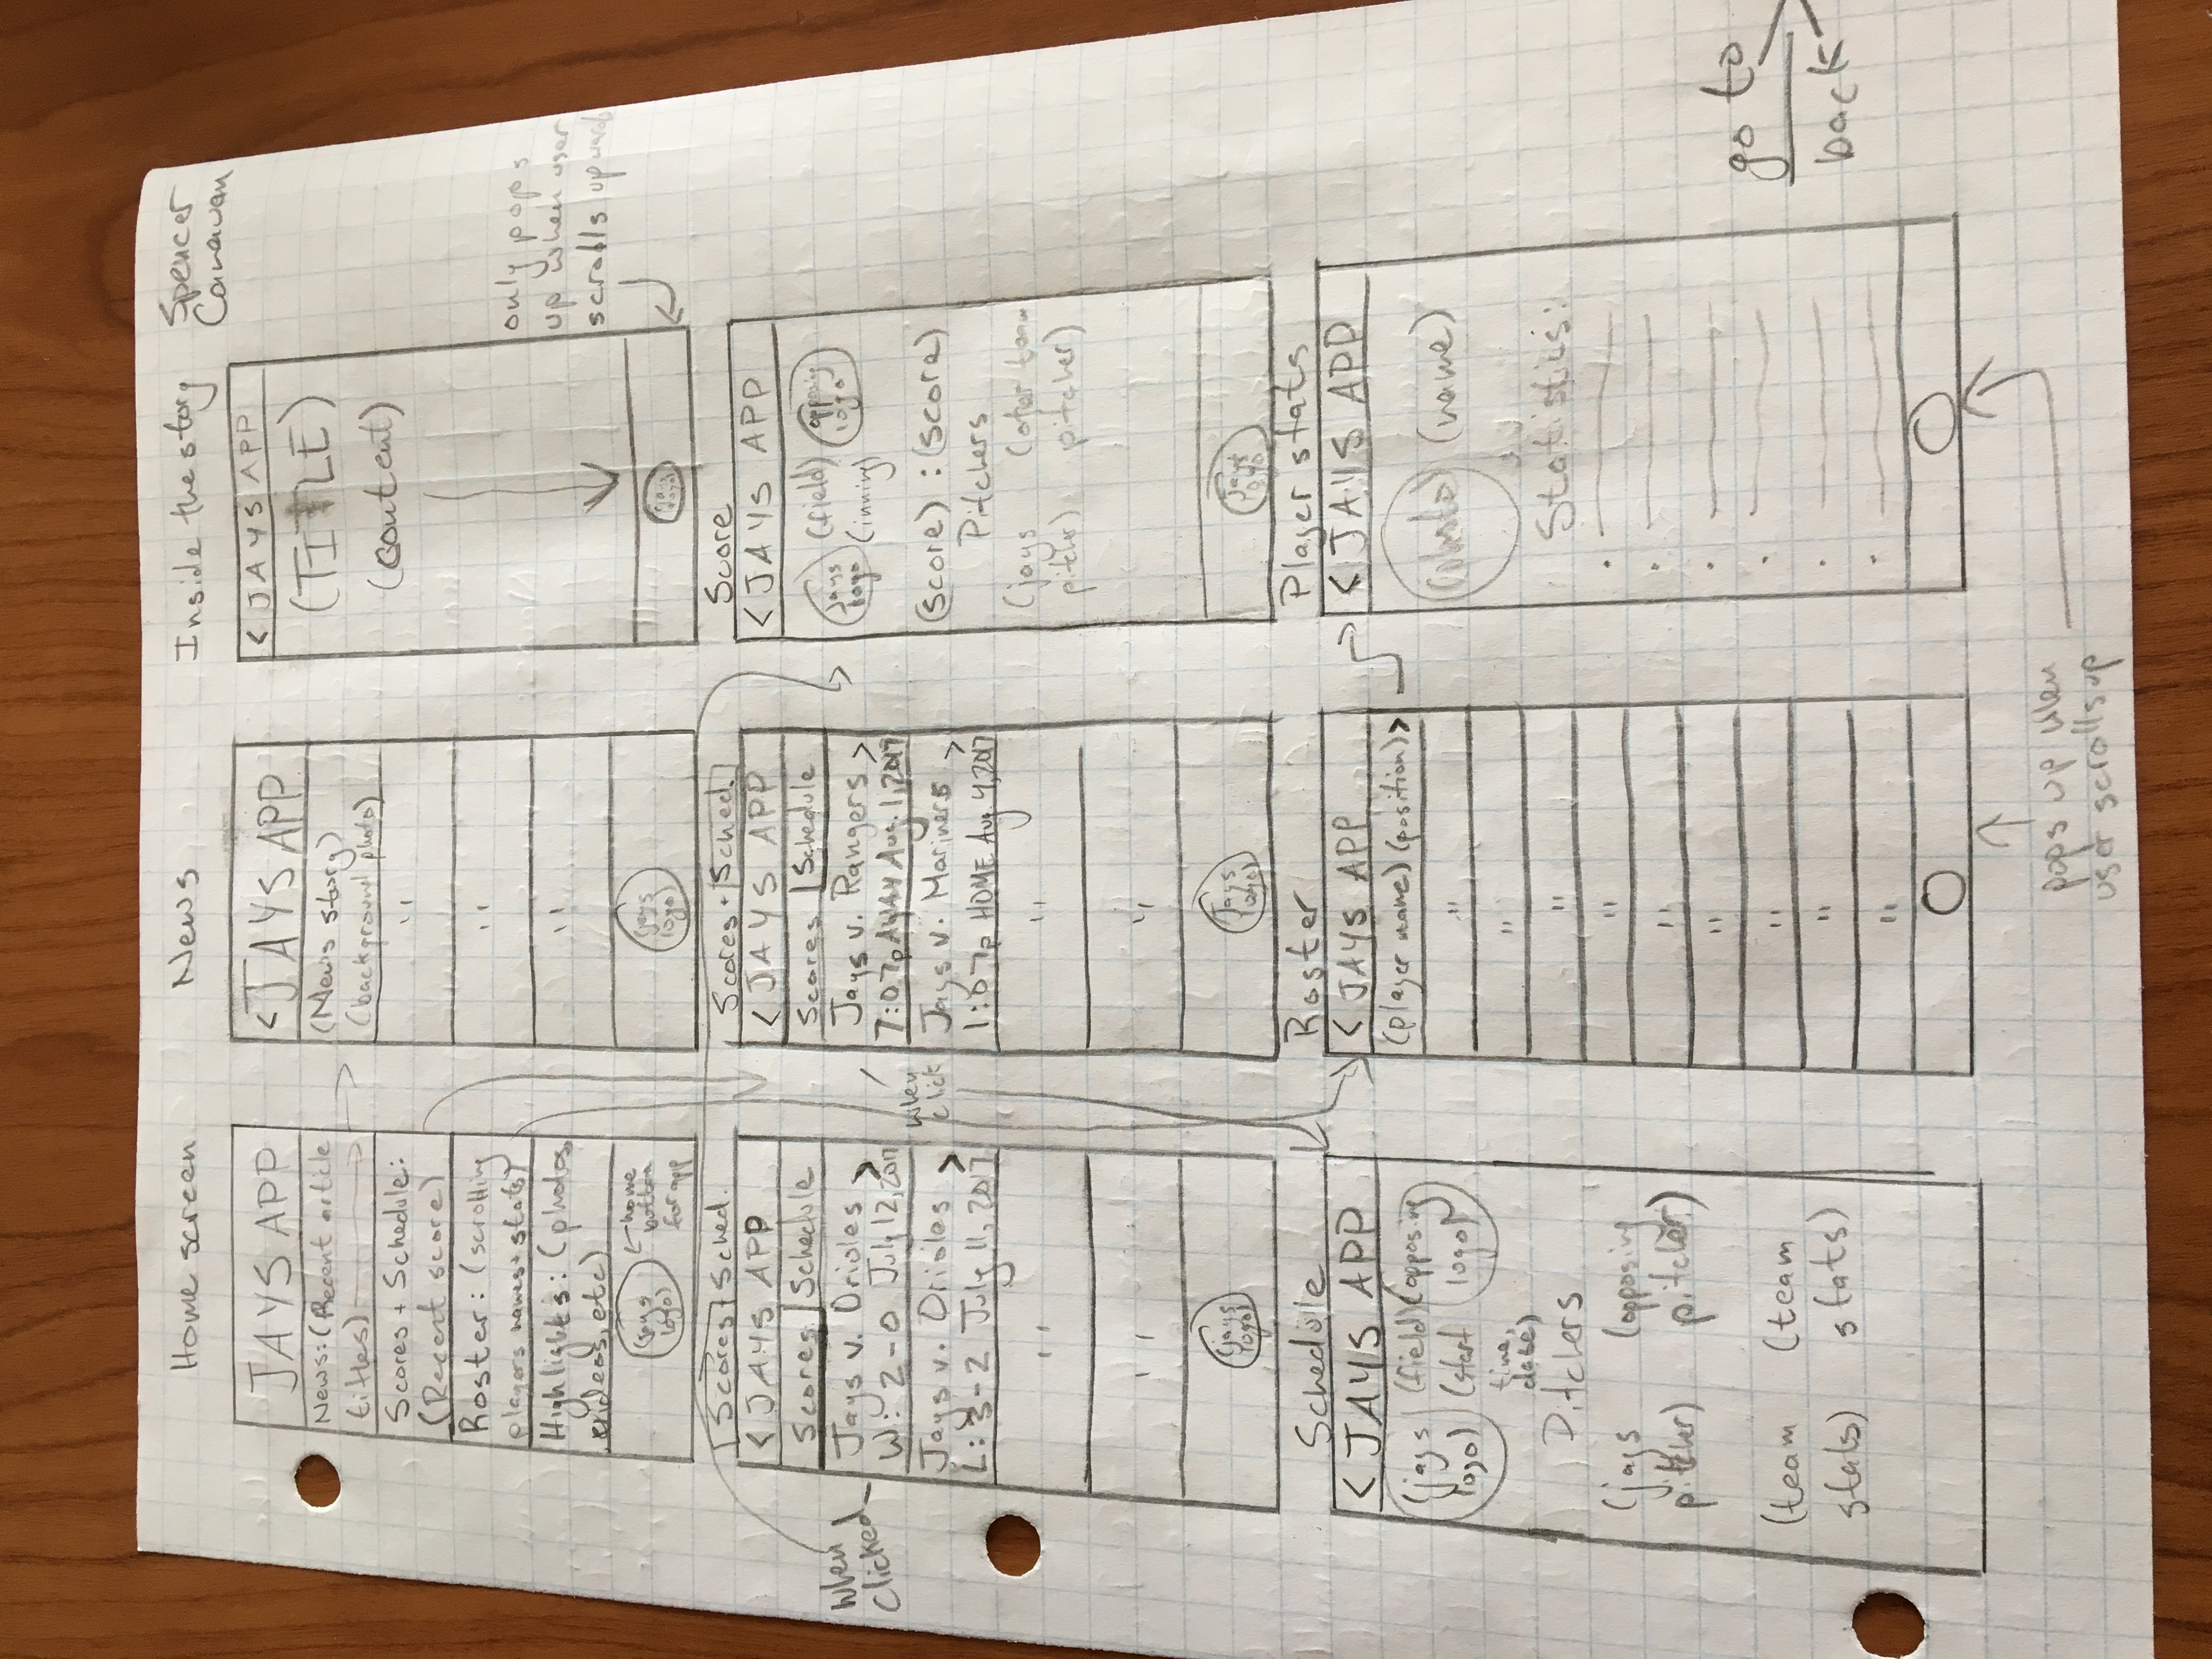 Home screen
News
Inside the story
Spencer
JAYS APP
News: (Recent article
titles)
Scores + Schedule:
(Recent score)
Roster: (scrolling
players names + stats)
Highlights: (photos,
videos, etc)
(jays
logo)
home
button
for app
< JAYS APP
(News story)
(background photo)
"
"
"
(jays
logo)
< JAYS APP
(TITLE)
(content)
(jays
logo)
only pops
up when user
scrolls upwards
Scores + Sched.
< JAYS APP
Scores Schedule
Jays v. Orioles >
W: 2-0 July 12, 2017
Jays v. Orioles >
L: 3-2 July 11, 2017
"
"
(jays
logo)
When
clicked
Scores + Sched.
< JAYS APP
Scores Schedule
Jays v. Rangers >
7:07p AWAY Aug. 1, 2017
Jays v. Mariners >
1:07p HOME Aug. 4, 2017
"
"
(Jays
logo)
when
click
Score
< JAYS APP
Jays
logo
(field)
(inning)
opposing
logo
(score) : (score)
Pitchers
(jays
pitcher)
(other team
pitcher)
Jays
logo
Schedule
< JAYS APP
(jays
logo)
(field)
(start
time,
date)
(opposing
logo)
Pitchers
(jays
pitcher)
(opposing
pitcher)
(team
stats)
(team
stats)
Roster
< JAYS APP
(player name) (position) >
"
"
"
"
"
"
"
"
"
Player stats
< JAYS APP
(photo) (name)
Statistics:
go to
back
pops up when
user scrolls up